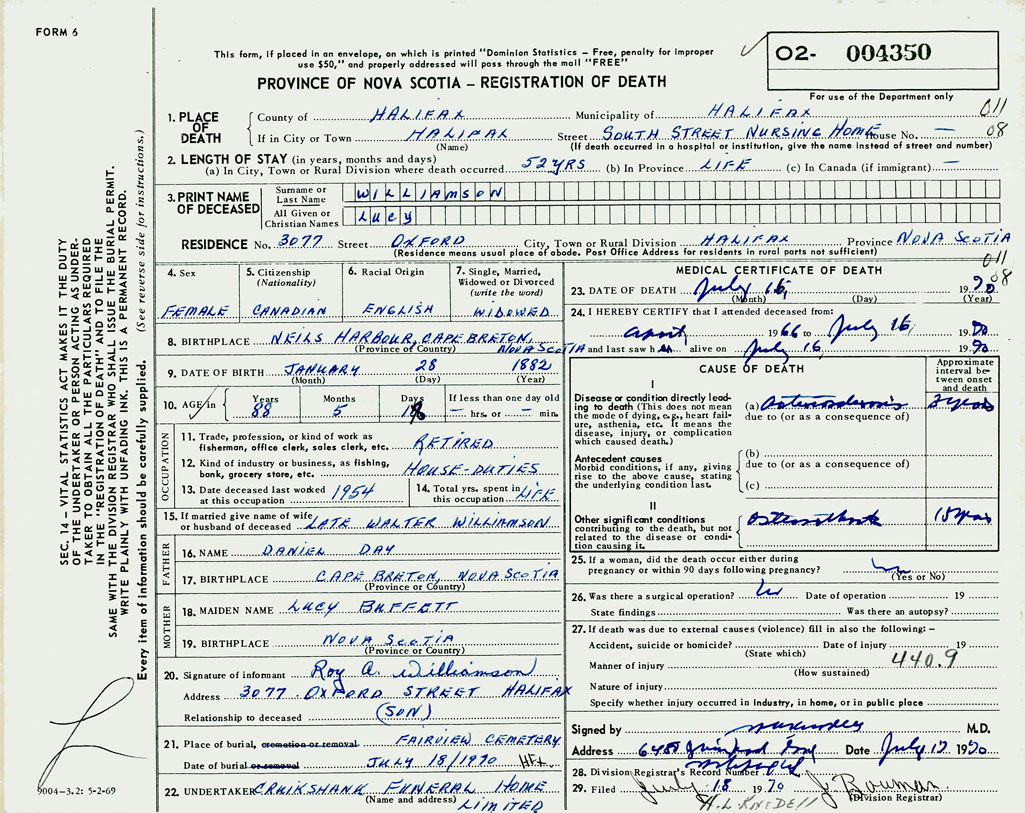 FORM 6
This form, if placed in an envelope, on which is printed "Dominion Statistics – Free, penalty for improper
use $50," and properly addressed will pass through the mail "FREE"
PROVINCE OF NOVA SCOTIA – REGISTRATION OF DEATH
O2- 004350
For use of the Department only
SEC. 14 – VITAL STATISTICS ACT MAKES IT THE DUTY
OF THE UNDERTAKER OR PERSON ACTING AS UNDER-
TAKER TO OBTAIN ALL THE PARTICULARS REQUIRED
IN THE "REGISTRATION OF DEATH" AND TO FILE THE
SAME WITH THE DIVISION REGISTRAR WHO SHALL ISSUE THE BURIAL PERMIT.
WRITE PLAINLY WITH UNFADING INK. THIS IS A PERMANENT RECORD.
Every item of information should be carefully supplied. (See reverse side for instructions.)
1. PLACE OF DEATH
County of HALIFAX Municipality of HALIFAX 011
If in City or Town HALIFAX Street SOUTH STREET NURSING HOME House No. — 08
(Name) (If death occurred in a hospital or institution, give the name instead of street and number)
2. LENGTH OF STAY (in years, months and days)
(a) In City, Town or Rural Division where death occurred 52 YRS (b) In Province LIFE (c) In Canada (if immigrant) —
3. PRINT NAME OF DECEASED
Surname or Last Name WILLIAMSON
All Given or Christian Names LUCY
RESIDENCE No. 3077 Street OXFORD City, Town or Rural Division HALIFAX Province NOVA SCOTIA
(Residence means usual place of abode. Post Office Address for residents in rural parts not sufficient)
011
08
4. Sex 5. Citizenship (Nationality) 6. Racial Origin 7. Single, Married, Widowed or Divorced (write the word)
FEMALE CANADIAN ENGLISH WIDOWED
8. BIRTHPLACE NEILS HARBOUR, CAPE BRETON, NOVA SCOTIA
(Province or Country)
9. DATE OF BIRTH JANUARY 28 1882
(Month) (Day) (Year)
10. AGE in Years Months Days If less than one day
88 5 18 — hrs. or — min.
OCCUPATION
11. Trade, profession, or kind of work as
fisherman, office clerk, sales clerk, etc. RETIRED
12. Kind of industry or business, as fishing,
bank, grocery store, etc. HOUSE-DUTIES
13. Date deceased last worked at this occupation 1954
14. Total yrs. spent in this occupation LIFE
15. If married give name of wife
or husband of deceased LATE WALTER WILLIAMSON
FATHER
16. NAME DANIEL DAY
17. BIRTHPLACE CAPE BRETON, NOVA SCOTIA
(Province or Country)
MOTHER
18. MAIDEN NAME LUCY BUFFETT
19. BIRTHPLACE NOVA SCOTIA
(Province or Country)
20. Signature of informant Roy A. Williamson
Address 3077 OXFORD STREET HALIFAX
Relationship to deceased (SON)
21. Place of burial, cremation or removal FAIRVIEW CEMETERY
Date of burial or removal JULY 18/1970 HFX.
22. UNDERTAKER CRUIKSHANK FUNERAL HOME
(Name and address) LIMITED
9004–3.2: 5-2-69
MEDICAL CERTIFICATE OF DEATH
23. DATE OF DEATH July 16, 1970
(Month) (Day) (Year)
24. I HEREBY CERTIFY that I attended deceased from:
April 1966 to July 16, 1970
and last saw her alive on July 16 1970
CAUSE OF DEATH
Approximate interval between onset and death
I
Disease or condition directly lead-
ing to death (This does not mean
the mode of dying, e.g., heart fail-
ure, asthenia, etc. It means the
disease, injury, or complication
which caused death.)
(a) 3 years
due to (or as a consequence of)
Antecedent causes
Morbid conditions, if any, giving
rise to the above cause, stating
the underlying condition last.
(b)
due to (or as a consequence of)
(c)
II
Other significant conditions
contributing to the death, but not
related to the disease or condi-
tion causing it.
years
25. If a woman, did the death occur either during
pregnancy or within 90 days following pregnancy?
(Yes or No)
26. Was there a surgical operation? Date of operation 19
State findings Was there an autopsy?
27. If death was due to external causes (violence) fill in also the following: –
Accident, suicide or homicide? Date of injury 19
(State which)
440.9
Manner of injury
(How sustained)
Nature of injury
Specify whether injury occurred in industry, in home, or in public place
Signed by M.D.
Address Date July 17 1970
28. Division Registrar's Record Number
29. Filed July 18 1970 J. Bowman
(Division Registrar)